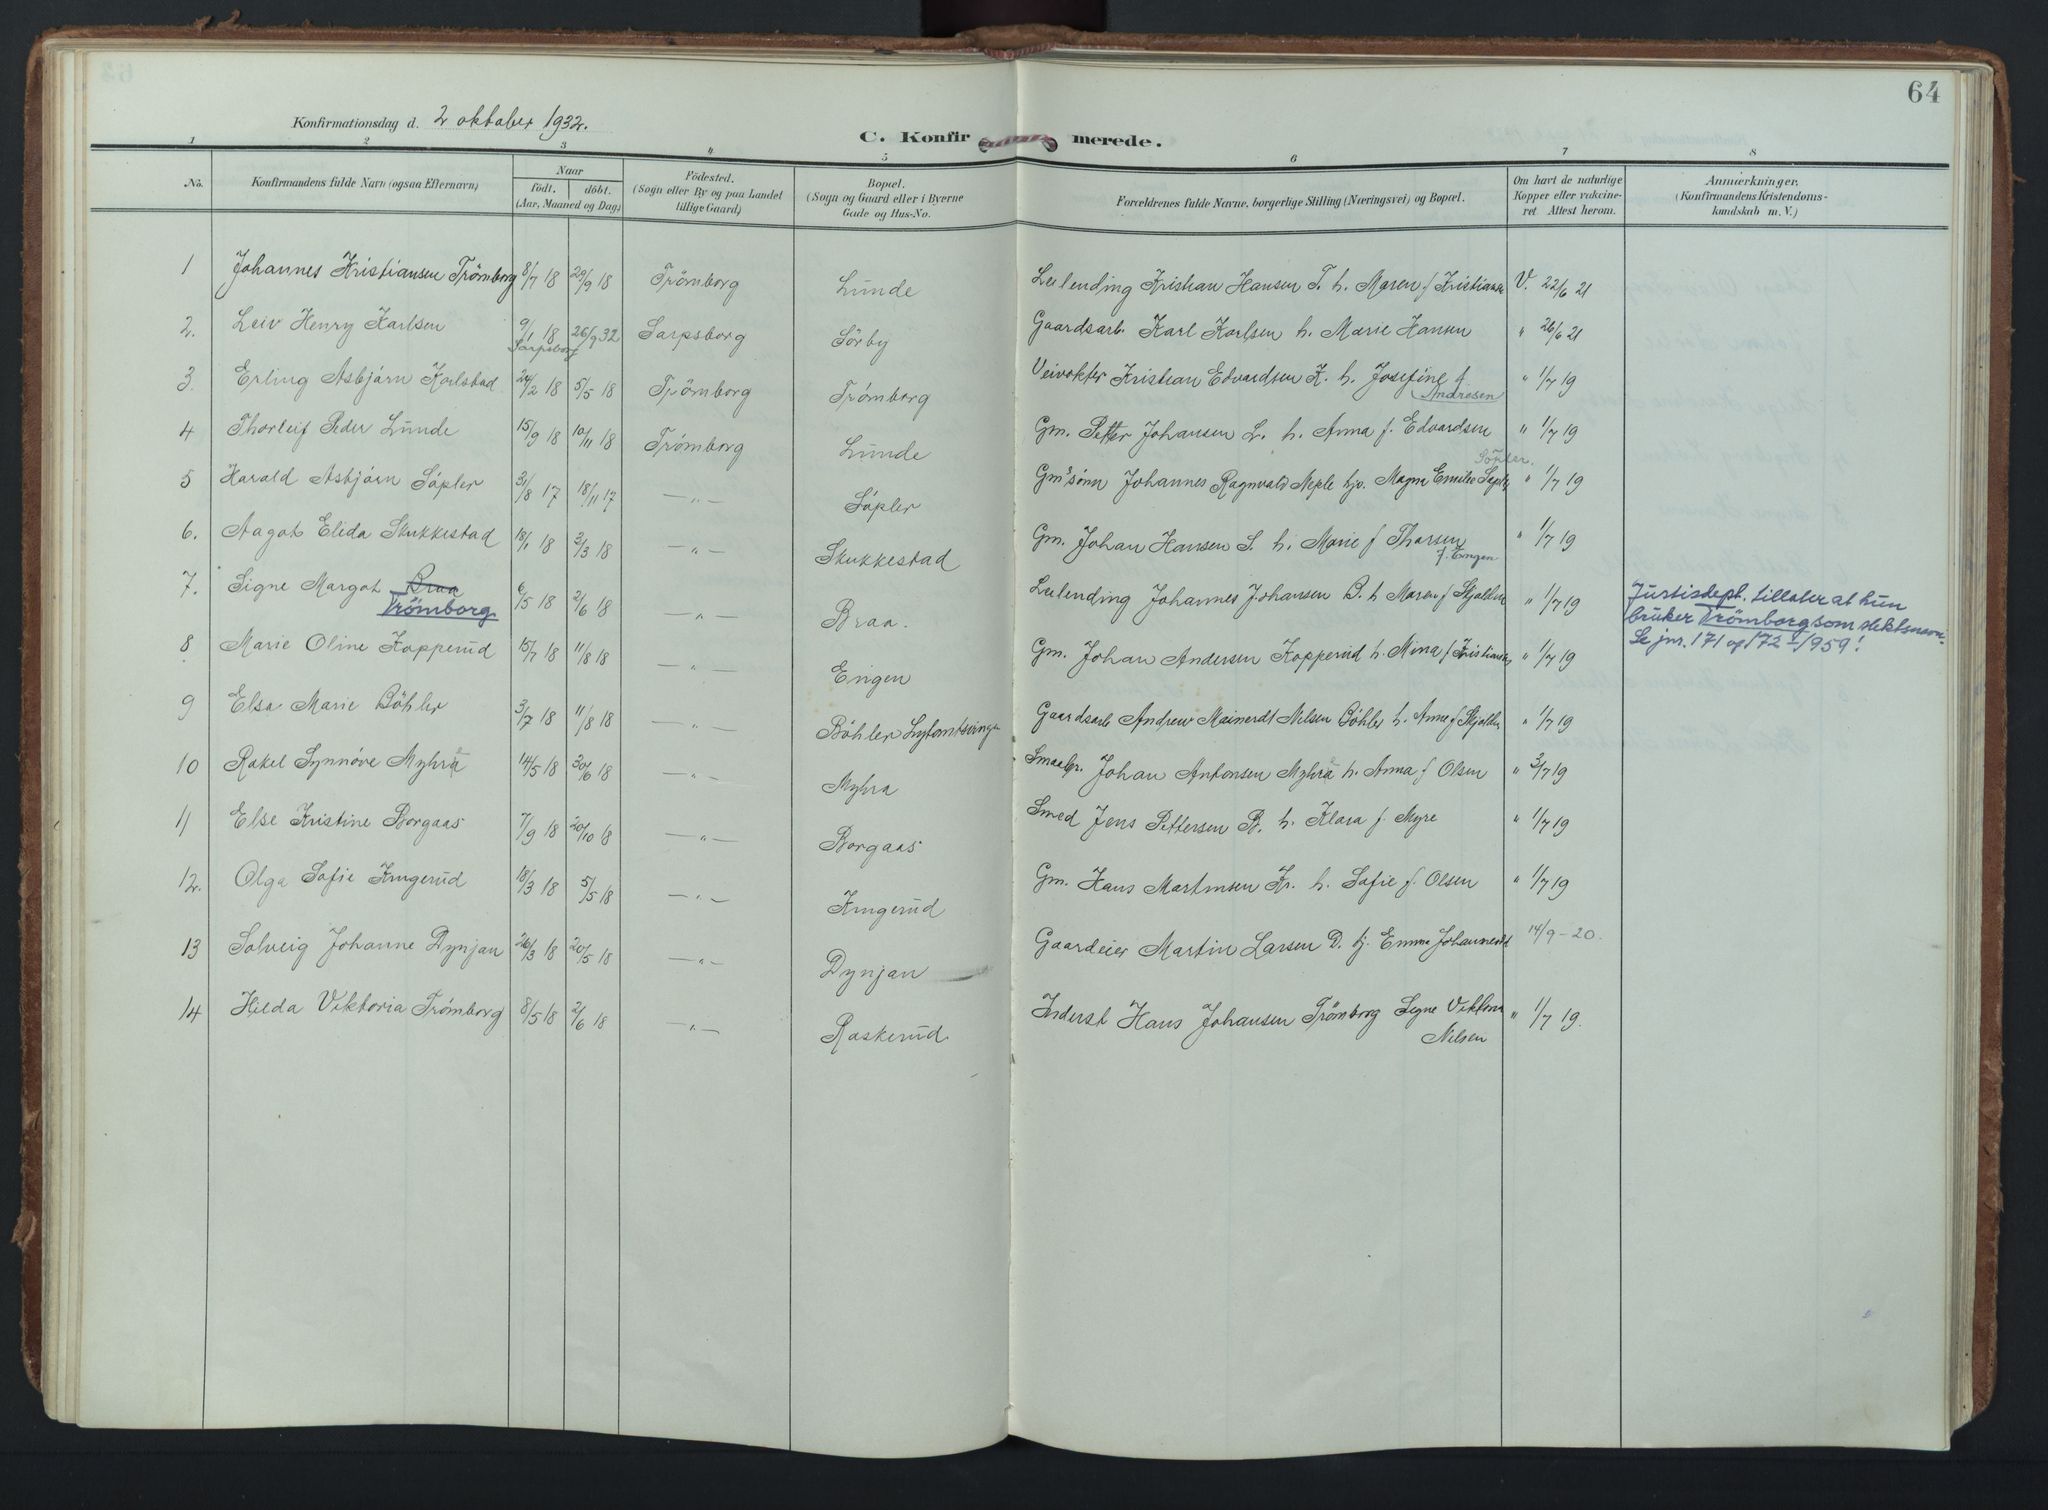 64
Konfirmationsdag d. 2 oktober 1932.
C. Konfirmerede.
1 2 3 4 5 6 7 8
No. Konfirmandens fulde Navn (ogsaa Efternavn) Naar födt. döbt. (Aar, Maaned og Dag) Födested. (Sogn eller By og paa Landet tillige Gaard) Bopæl. (Sogn og Gaard eller i Byerne Gade og Hus-No. Forældrenes fulde Navne, borgerlige Stilling (Næringsvei) og Bopæl. Om havt de naturlige Kopper eller vakcineret. Attest herom. Anmærkninger. (Konfirmandens Kristendomskundskab m. V.)
1 Johannes Kristiansen Trömborg 8/7 18 29/9 18 Trömborg Lunde Leilending Kristian Hansen T. h. Maren f Kristians V. 22/6 21
2. Leiv Henry Karlsen 9/1 18 Sarpsborg 26/9 32 Sarpsborg Sörby Gaardsarb. Karl Karlsen h. Marie Hansen " 26/6 21
3. Erling Asbjörn Karlstad 24/2 18 5/5 18 Trömborg Trömborg Veivokter Kristian Edvardsen K. h. Josefine f Andresen " 1/7 19
4 Thorleif Peder Lunde 15/9 18 10/11 18 Trömborg Lunde Gm. Petter Johansen L. h. Anna f. Edvardsen " 1/7 19
5 Harald Asbjörn Söpler 31/8 17 18/11 17 —"— Söpler Gm's sönn Johannes Ragnvald Neple hj. Magna Emilie Söpler. " 1/7 19
6. Aagot Elida Skukkestad 18/1 18 3/3 18 —"— Skukkestad Gm. Johan Hansen S. h. Marie f Thorsen f. Engen " 1/7 19
7. Signe Margot Braa Trömborg 6/5 18 2/6 18 —"— Braa. Leilending Johannes Johansen B. h Maren f Skjolden " 1/7 19 Justisdept. tillater at hun
bruker Trömborg som slektsnavn.
Se jnr. 171 og 172 1/1959!
8 Marie Oline Kopperud 15/7 18 11/8 18 —"— Engen Gm. Johan Andersen Kopperud h. Mina f Kristians " 1/7 19
9 Elsa Marie Böhler 3/7 18 11/8 18 —"— Böhler Gaardsarb Andrew Mainerdt Nilsen Böhler h. Anne f Skjolden " 1/7 19
10 Rakel Synnöve Myhra 14/5 18 30/6 18 —"— Myhra Smaabr. Johan Antonsen Myhra h. Anna f Olsen " 3/7 19
11 Else Kristine Borgaas 7/9 18 20/10 18 —"— Borgaas Smed Jens Pettersen B. h. Klara f. Myre " 1/7 19
12. Olga Sofie Krugerud 18/3 18 5/5 18 —"— Krugerud Gm. Hans Martinsen Kr. h. Sofie f. Olsen " 1/7 19
13 Solveig Johanne Dynjan 26/3 18 20/5 18 —"— Dynjan Gaardeier Martin Larsen D. hj. Emma Johannesdt 14/9-20.
14 Hilda Viktoria Trömborg 8/5 18 2/6 18 —"— Raskerud Inderst Hans Johansen Trömborg Signe Viktoria Nilsen " 1/7 19.